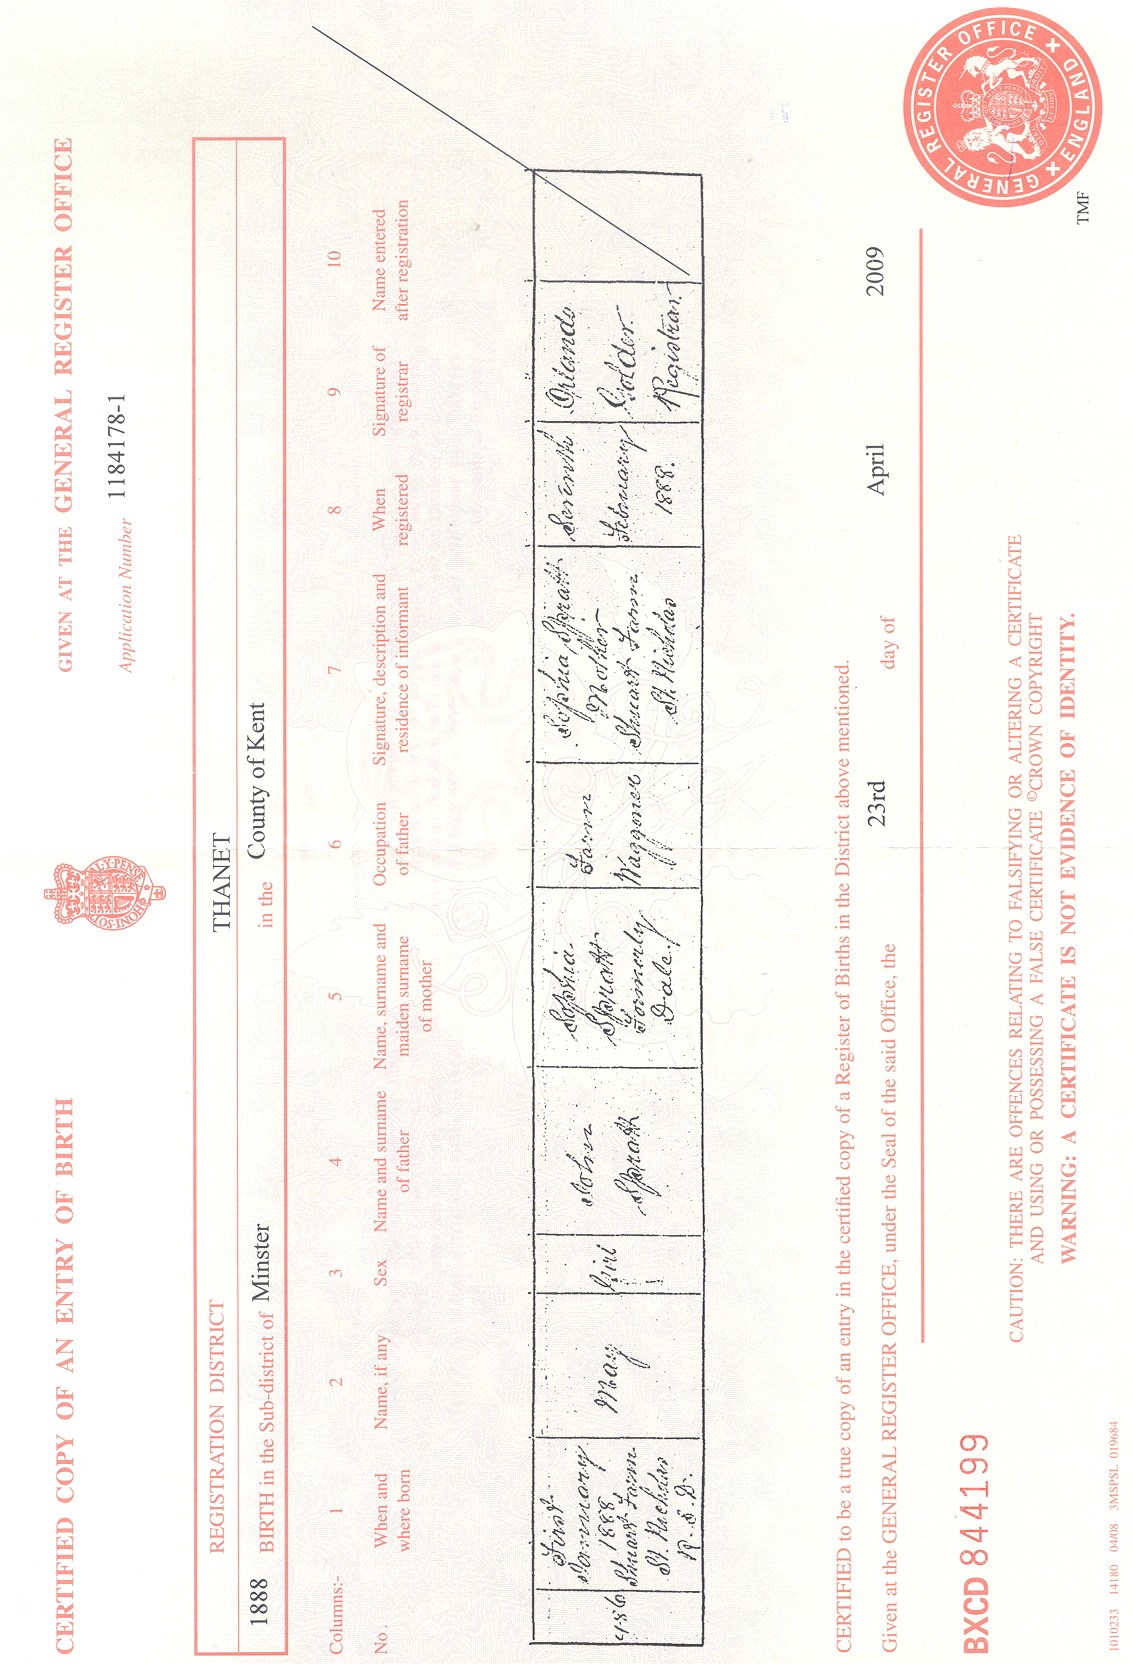 CERTIFIED COPY OF AN ENTRY OF BIRTH
GIVEN AT THE GENERAL REGISTER OFFICE
Application Number 1184178-1
REGISTRATION DISTRICT THANET
1888 BIRTH in the Sub-district of Minster in the County of Kent
Columns:- 1 2 3 4 5 6 7 8 9 10
No. When and where born
Name, if any
Sex
Name and surname of father
Name, surname and maiden surname of mother
Occupation of father
Signature, description and residence of informant
When registered
Signature of registrar
Name entered after registration
486
First
January
1888
Shuart Farm
St. Nicholas
R.S.D.
May
Girl
John
Spratt
Sophia
Spratt
Formerly
Dale
Farm
Waggoner
Sophia Spratt
Mother
Shuart Farm
St. Nicholas
Seventh
February
1888.
Orlando
Golder
Registrar.
CERTIFIED to be a true copy of an entry in the certified copy of a Register of Births in the District above mentioned.
Given at the GENERAL REGISTER OFFICE, under the Seal of the said Office, the 23rd day of April 2009
BXCD 844199
CAUTION: THERE ARE OFFENCES RELATING TO FALSIFYING OR ALTERING A CERTIFICATE
AND USING OR POSSESSING A FALSE CERTIFICATE ©CROWN COPYRIGHT
WARNING: A CERTIFICATE IS NOT EVIDENCE OF IDENTITY.
1010233 14180 04/08 3MSPSL 019684
GENERAL REGISTER OFFICE ENGLAND
TMF